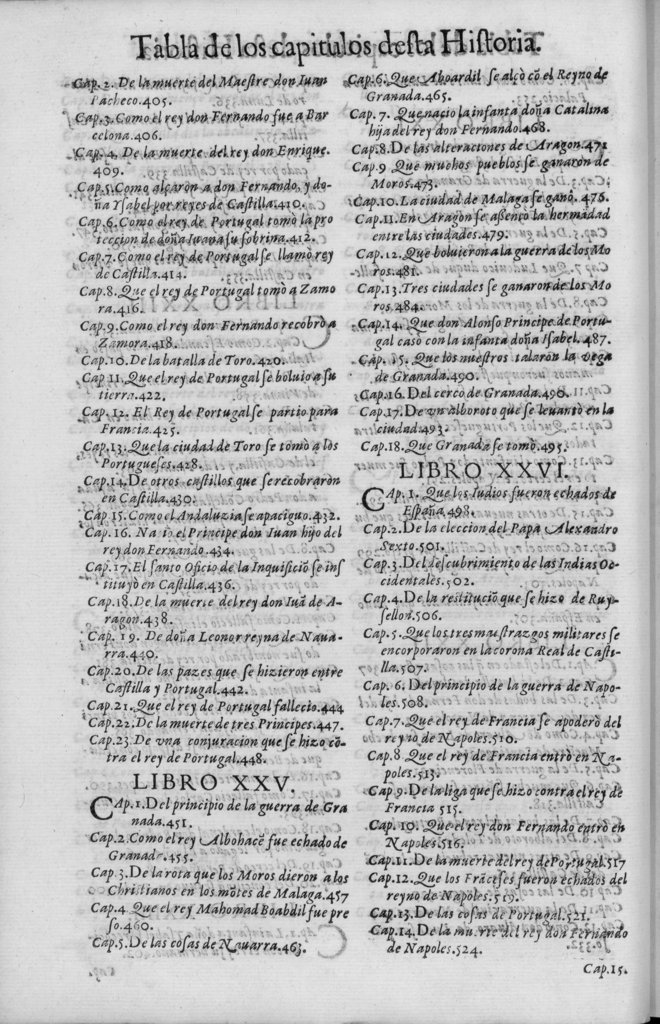 Tabla de los capitulos desta Historia.
Cap.2. De la muerte del Maestre don Iuan
Pacheco.405.
Cap.3. Como el rey don Fernando fue a Bar
celona.406.
Cap.4. De la muerte del rey don Enrique.
409.
Cap.5. Como alçaron a don Fernando, y do-
ña Isabel por reyes de Castilla.410.
Cap.6. Como el rey de Portugal tomò la pro
teccion de doña Iuana su sobrina.412.
Cap.7. Como el rey de Portugal se llamò rey
de Castilla.414.
Cap.8. Que el rey de Portugal tomò a Zamo
ra.416.
Cap.9. Como el rey don Fernando recobrò a
Zamora.418.
Cap.10. De la batalla de Toro.420.
Cap 11. Que el rey de Portugal se boluio a su
tierra.422.
Cap.12. El Rey de Portugal se partio para
Francia.425.
Cap.13. Que la ciudad de Toro se tomò a los
Portugueses.428.
Cap.14. De otros castillos que se recobraron
en Castilla.430.
Cap 15. Como el Andaluzia se apaciguo.432.
Cap.16. Nacio el Principe don Iuan hijo del
rey don Fernando.434.
Cap.17. El santo Oficio de la Inquisiciõ se ins
tituyò en Castilla.436.
Cap.18. De la muerte del rey don Iuã de A-
ragon.438.
Cap. 19. De doña Leonor reyna de Naua-
rra.440.
Cap.20. De las pazes que se hizieron entre
Castilla y Portugal.442.
Cap.21. Que el rey de Portugal fallecio.444
Cap.22. De la muerte de tres Principes.447.
Cap.23. De vna conjuracion que se hizo cõ
tra el rey de Portugal.448.
LIBRO XXV.
CAp.1. Del principio de la guerra de Gra
nada.451.
Cap.2. Como el rey Albohacẽ fue echado de
Granada.455.
Cap.3. De la rota que los Moros dieron a los
Christianos en los mõtes de Malaga.457
Cap.4 Que el rey Mahomad Boabdil fue pre
so.460.
Cap.5. De las cosas de Nauarra.463.
Cap.6. Que Aboardil se alçò cõ el Reyno de
Granada.465.
Cap. 7. Que nacio la infanta doña Catalina
hija del rey don Fernando.468.
Cap.8. De las alteraciones de Aragon.471
Cap.9 Que muchos pueblos se ganaron de
Moros.473.
Cap.10. La ciudad de Malaga se ganò. 476.
Cap.11. En Aragon se assentò la hermãdad
entre las ciudades.479.
Cap.12. Que boluieron a la guerra de los Mo
ros.481.
Cap.13. Tres ciudades se ganaron de los Mo
ros.484.
Cap.14. Que don Alonso Principe de Portu-
gal casò con la infanta doña Isabel. 487.
Cap. 15. Que los nuestros talaron la vega
de Granada.490.
Cap.16. Del cerco de Granada.490.
Cap.17. De vn alboroto que se leuantò en la
ciudad 493.
Cap.18. Que Granada se tomò.495.
LIBRO XXVI.
CAp. 1. Que los Iudios fueron echados de
España.498.
Cap.2. De la eleccion del Papa Alexandro
Sexto.501.
Cap.3. Del descubrimiento de las Indias Oc-
cidentales.502.
Cap.4. De la restituciõ que se hizo de Ruy-
sellon.506.
Cap.5. Que los tres maestrazgos militares se
encorporaron en la corona Real de Casti-
lla.507.
Cap. 6. Del principio de la guerra de Napo-
les.508.
Cap.7. Que el rey de Francia se apoderò del
reyno de Napoles.510.
Cap.8. Que el rey de Francia entrò en Na-
poles.513.
Cap 9. De la liga que se hizo contra el rey de
Francia 515.
Cap. 10. Que el rey don Fernando entrò en
Napoles.516.
Cap.11. De la muerte del rey de Portugal.517
Cap.12. Que los Frãceses fueron echados del
reyno de Napoles.519.
Cap.13. De las cosas de Portugal.521.
Cap.14. De la muerte del rey don Fernando
de Napoles.524.
Cap.15.